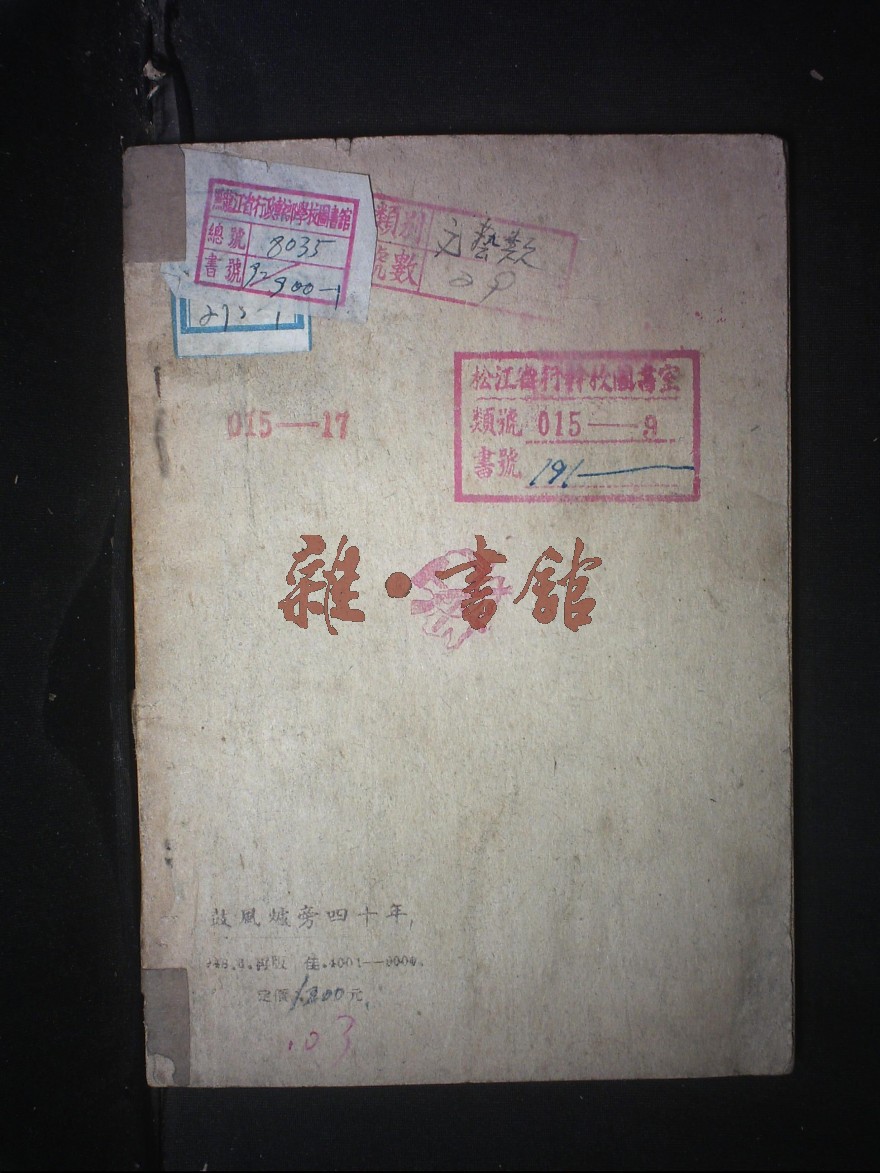 黑龍江省行政幹部學校圖書館
總號 8035
書號 92/900-1
類別 文藝類
號數 29
275-1
015—17
松江省行幹校圖書室
類號 015—9
書號 191—
雜·書館
鼓風爐旁四十年
再版 佳.4001—9000.
定價 元
.03